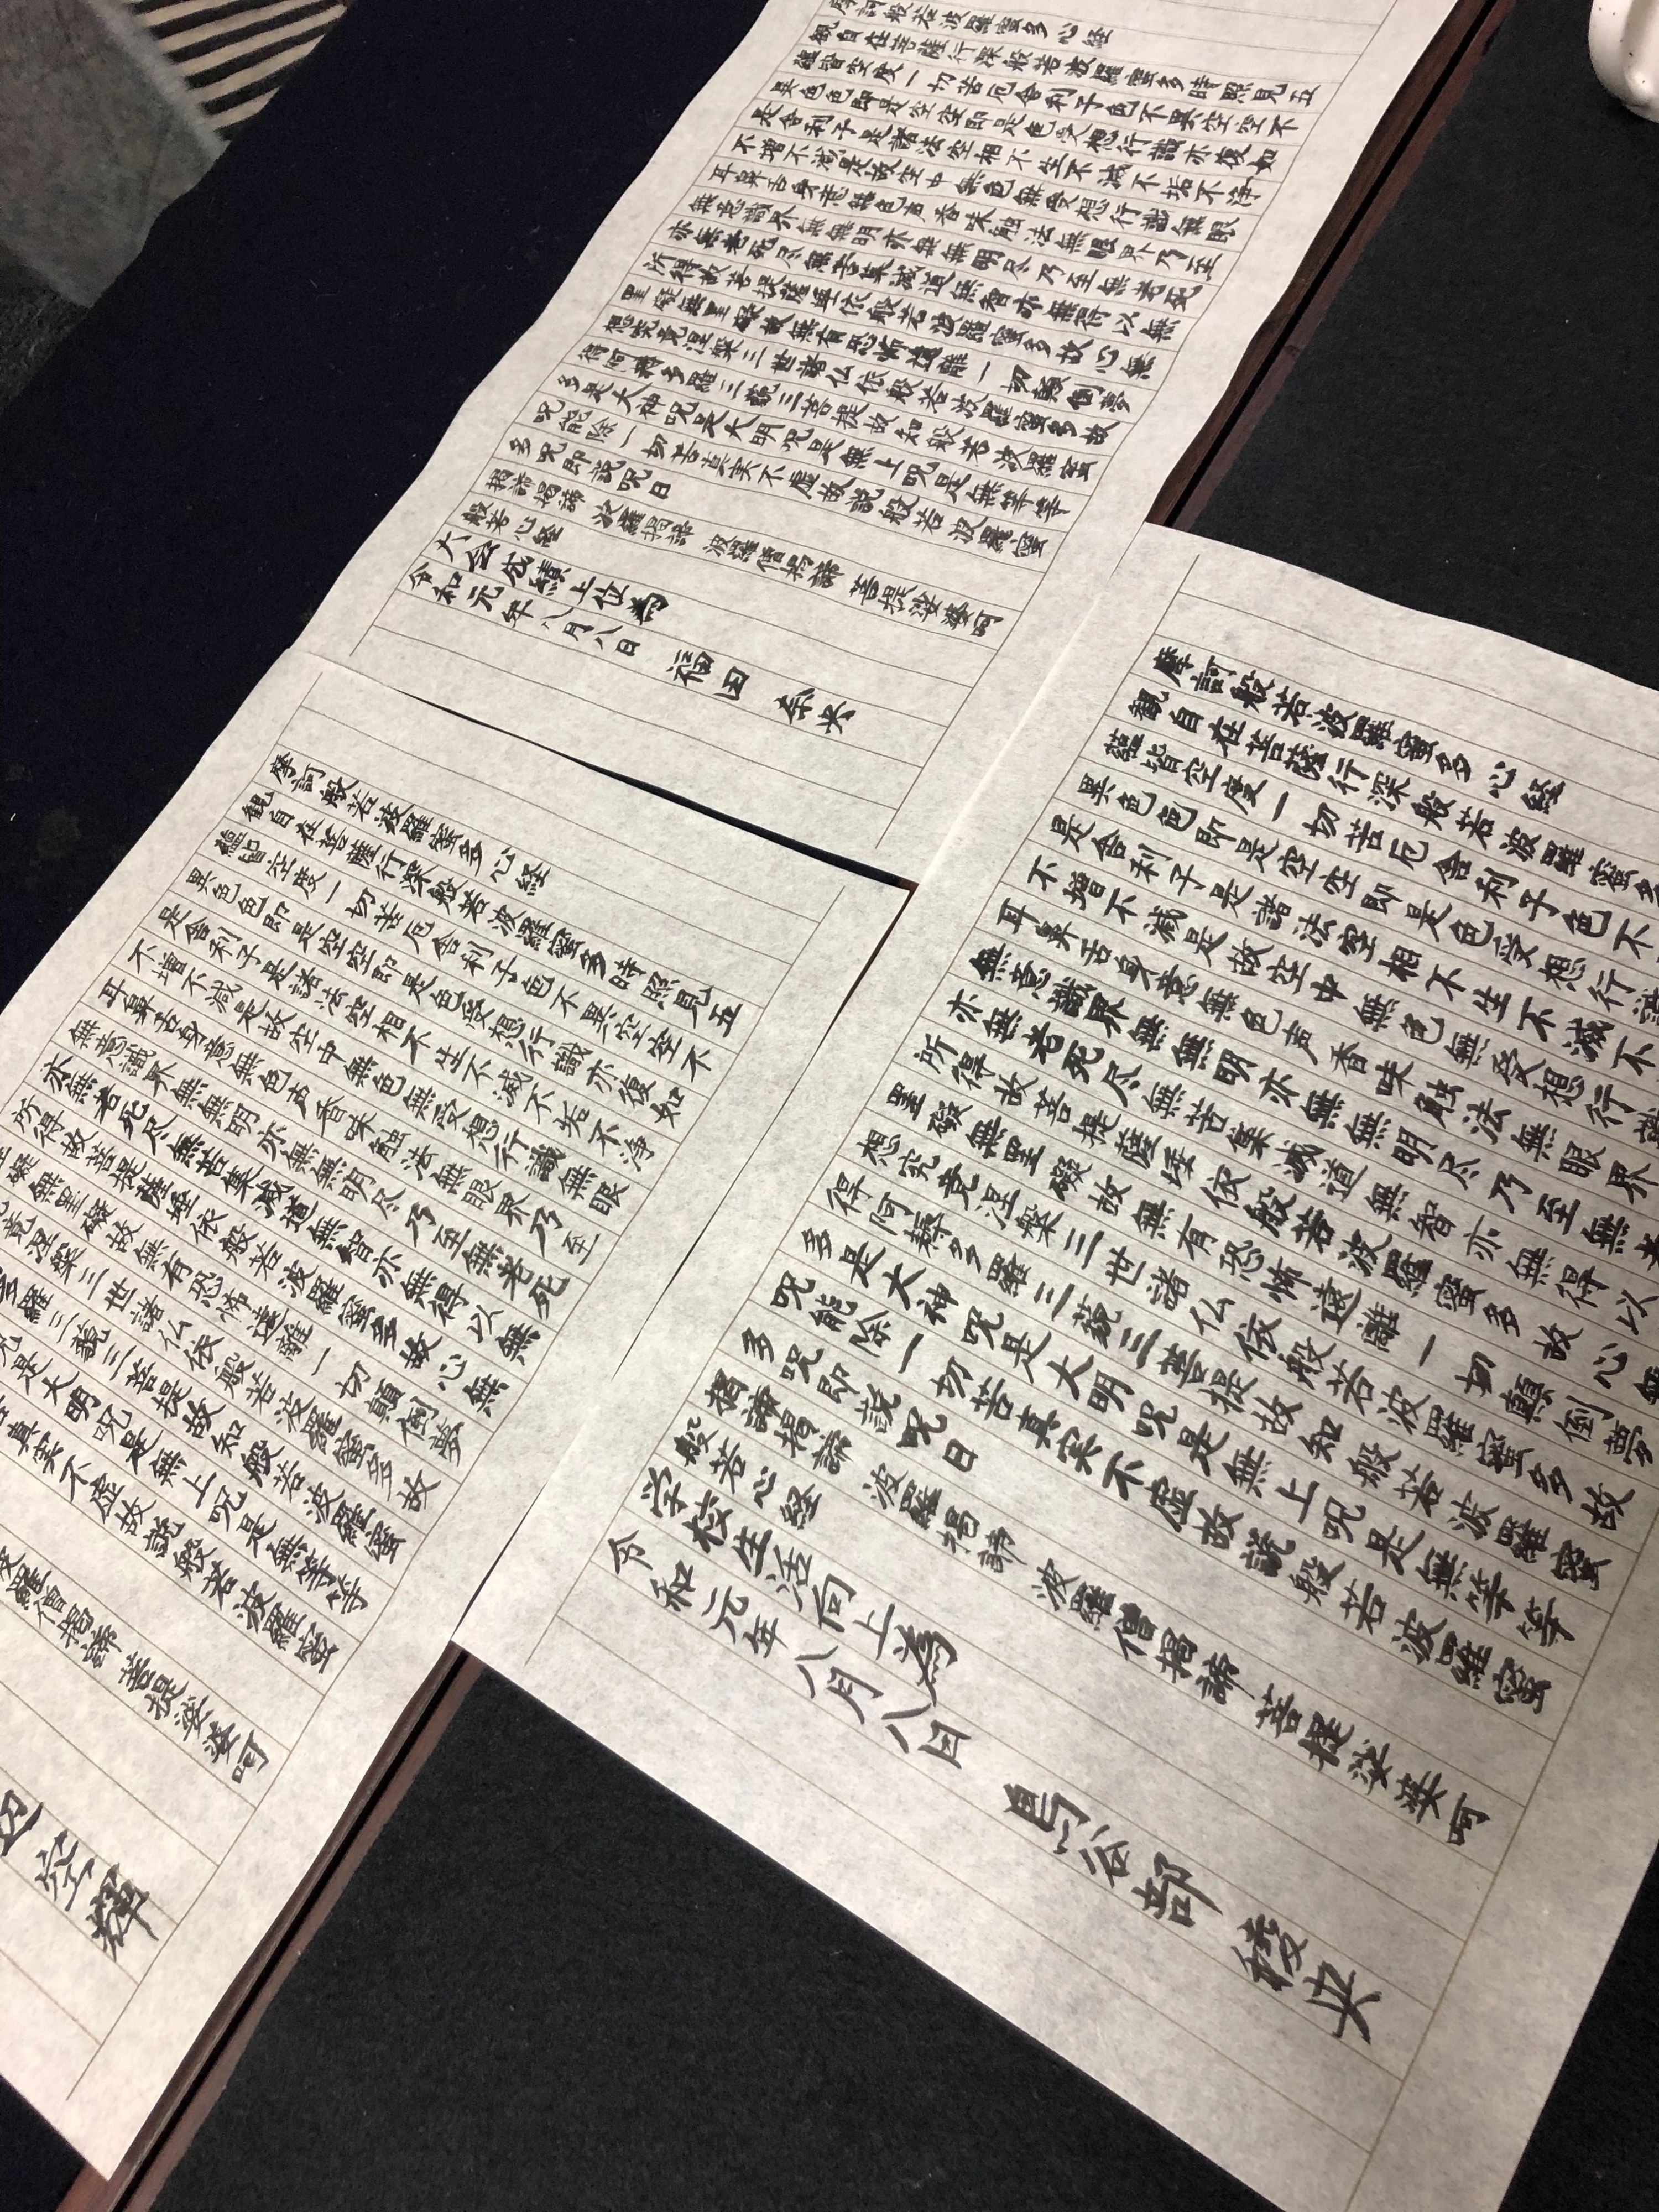 摩訶般若波羅蜜多心経
観自在菩薩行深般若波羅蜜多時照見五
蘊皆空度一切苦厄舎利子色不異空空不
異色色即是空空即是色受想行識亦復如
是舎利子是諸法空相不生不滅不垢不浄
不増不減是故空中無色無受想行識無眼
耳鼻舌身意無色声香味触法無眼界乃至
無意識界無無明亦無無明尽乃至無老死
亦無老死尽無苦集滅道無智亦無得以無
所得故菩提薩埵依般若波羅蜜多故心無
罣礙無罣礙故無有恐怖遠離一切顛倒夢
想究竟涅槃三世諸仏依般若波羅蜜多故
得阿耨多羅三藐三菩提故知般若波羅蜜
多是大神呪是大明呪是無上呪是無等等
呪能除一切苦真実不虚故説般若波羅蜜
多呪即説呪日
揭諦揭諦 波羅揭諦 波羅僧揭諦 菩提娑婆呵
般若心経
大会成績上位為
令和元年八月八日 福田 奈央
摩訶般若波羅蜜多心経
観自在菩薩行深般若波羅蜜多
蘊皆空度一切苦厄舎利子色不
異色色即是空空即是色受想行識
是舎利子是諸法空相不生不滅不
不増不減是故空中無色無受想行識
耳鼻舌身意無色声香味触法無眼界
無意識界無無明亦無無明尽乃至無老
亦無老死尽無苦集滅道無智亦無得以
所得故菩提薩埵依般若波羅蜜多故心無
罣礙無罣礙故無有恐怖遠離一切顛倒夢
想究竟涅槃三世諸仏依般若波羅蜜多故
得阿耨多羅三藐三菩提故知般若波羅蜜
多是大神呪是大明呪是無上呪是無等等
呪能除一切苦真実不虚故説般若波羅蜜
多呪即説呪日
揭諦揭諦 波羅揭諦 波羅僧揭諦 菩提娑婆呵
般若心経
学校生活向上為
令和元年八月八日 長谷部 稜央
摩訶般若波羅蜜多心経
観自在菩薩行深般若波羅蜜多時照見五
蘊皆空度一切苦厄舎利子色不異空空不
異色色即是空空即是色受想行識亦復如
是舎利子是諸法空相不生不滅不垢不浄
不増不減是故空中無色無受想行識無眼
耳鼻舌身意無色声香味触法無眼界乃至
無意識界無無明亦無無明尽乃至無老死
亦無老死尽無苦集滅道無智亦無得以無
所得故菩提薩埵依般若波羅蜜多故心無
礙無罣礙故無有恐怖遠離一切顛倒夢
竟涅槃三世諸仏依般若波羅蜜多故
多羅三藐三菩提故知般若波羅蜜
呪是大明呪是無上呪是無等等
苦真実不虚故説般若波羅蜜
波羅僧揭諦 菩提娑婆呵
空輝